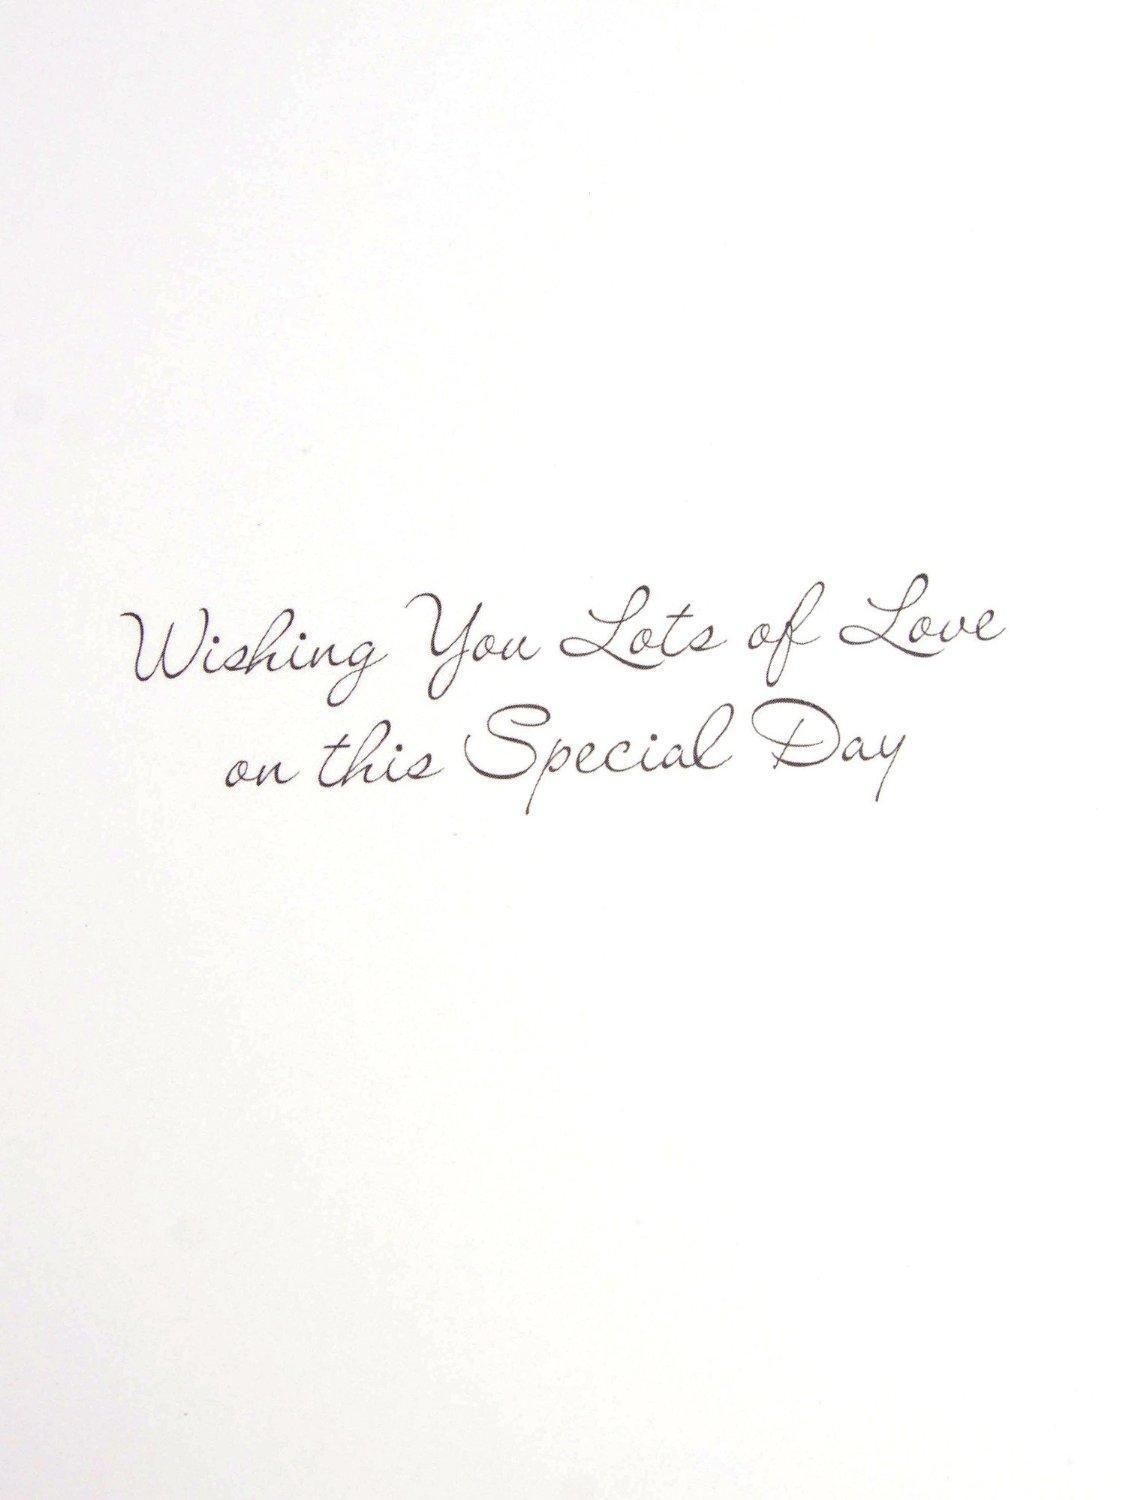 Wishing You Lots of Love
on this Special Day